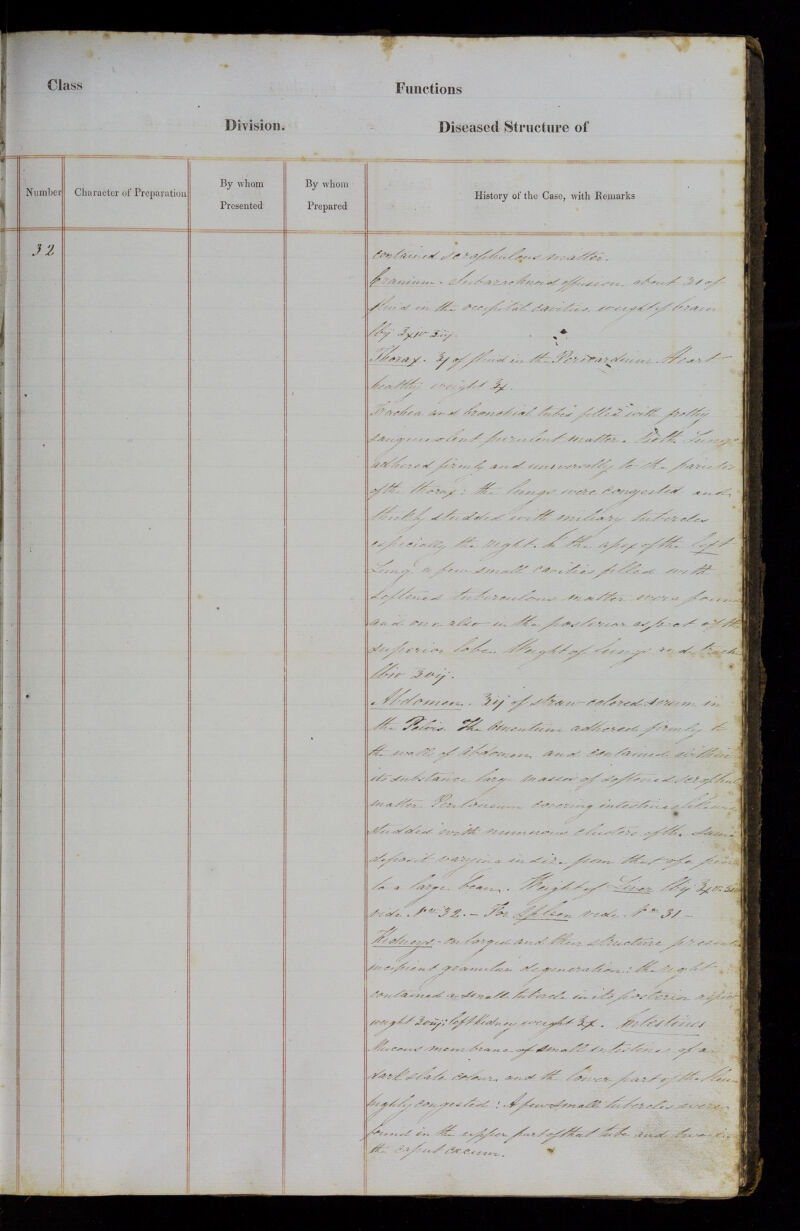 Class
Functions
Division.
Diseased Structure of
Number
Character of Preparation
By whom Presented
By whom Prepared
History of the Case, with Remarks
32
contained scrophulous matter.
Cranium. Subarachnoid effusion about of
fluid in the occipital cavities weight of brain

Thorax. of fluid in the Pericardium. Heart
healthy weight
Trachea and bronchial tubes filled with frothy
sanguinolent purulent matter. Both Lungs
adhered firmly and universally to the parietes
of the thorax: the lungs were congested and
thickly studded with miliary tubercles
especially the right. In the apex of the left
Lung a few small cavities filled with
softened tuberculous matter were found
and one also in the posterior aspect of the
superior lobe. Weight of Lungs and

Abdomen. of straw colored serum in
the Pelvis. The Omentum adhered firmly to
the walls of abdomen and contained within
its substance large masses of softened
matter. Peritoneum covering intestines
studded with numerous clusters of the same
deposit varying in size from that of a
to a large bean. Weight of Liver
vide No 32. — For Spleen vide No 31 —
Kidneys enlarged and their structure
incipient granular degeneration: the right
contained a small tubercle in its posterior
weight left Kidney weight Intestines
Mucous membrane of small intestines of a
dark slate colour and the lower part of the
highly congested: A few small tubercles were
found in the upper part of that tube and
the caput caecum.